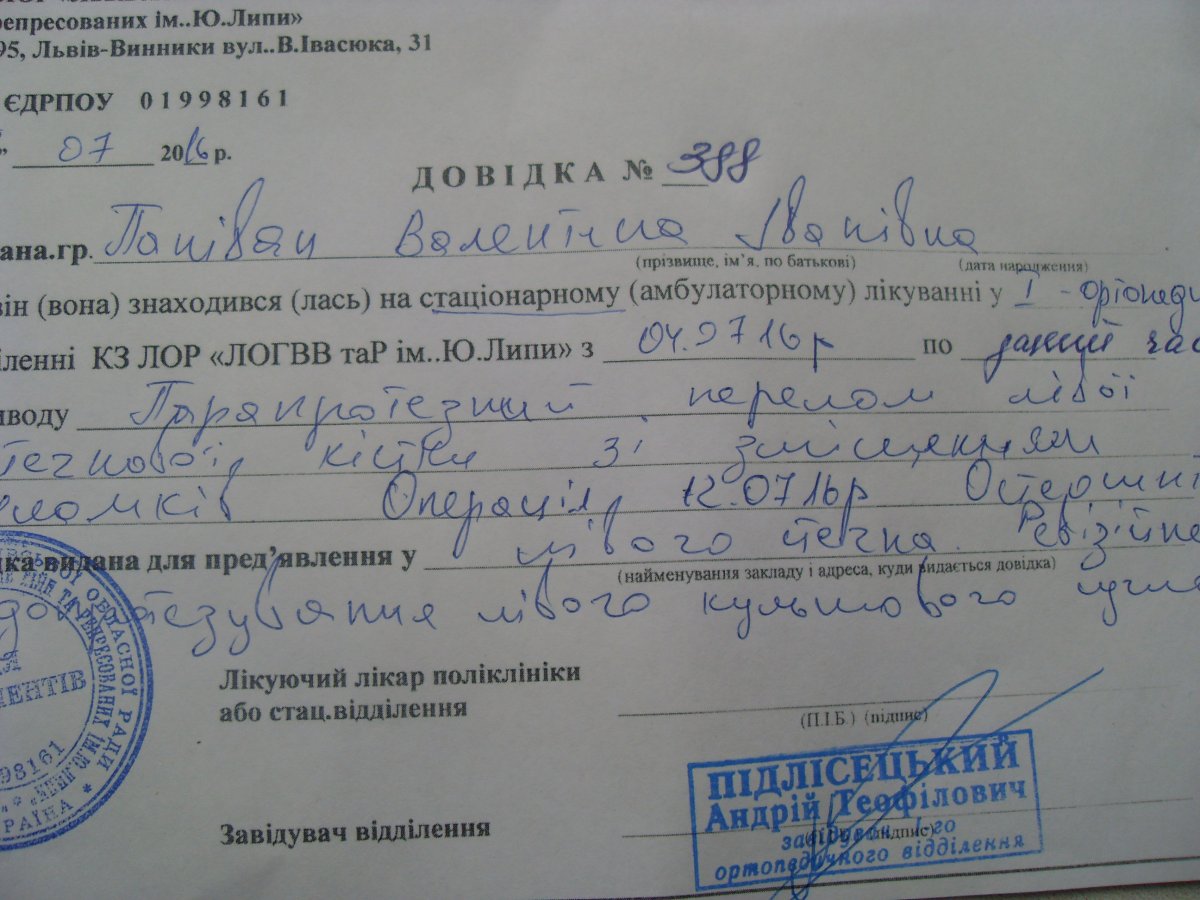 репресованих ім..Ю.Липи»
95, Львів-Винники вул..В.Івасюка, 31
ЄДРПОУ 01998161
" 07 2016 р.
ДОВІДКА № 388
ана.гр. Паніван Валентина Іванівна
(прізвище, ім'я, по батькові) (дата народження)
він (вона) знаходився (лась) на стаціонарному (амбулаторному) лікуванні у I - ортопеди
іленні КЗ ЛОР «ЛОГВВ таР ім..Ю.Липи» з 04.07 16р по даний час
иводу Парапротезний перелом лівої
тегнової кістки зі зміщенням
уламків. Операція 12.07 16р Остеосинт
ка видана для пред'явлення у лівого стегна. Ревізійне
(найменування закладу і адреса, куди видається довідка)
ендопротезування лівого кульшового сугл
Лікуючий лікар поліклініки
або стац.відділення
(П.І.Б.) (підпис)
ПІДЛІСЕЦЬКИЙ
Андрій Теофілович
завідувач І-го
ортопедичного відділення
Завідувач відділення
(підпис)
ОБЛАСНОЇ РАДИ
РЕПРЕСОВАНИХ ІМ.Ю.ЛИПИ
МЕНТІВ
98161
РАЇНА *